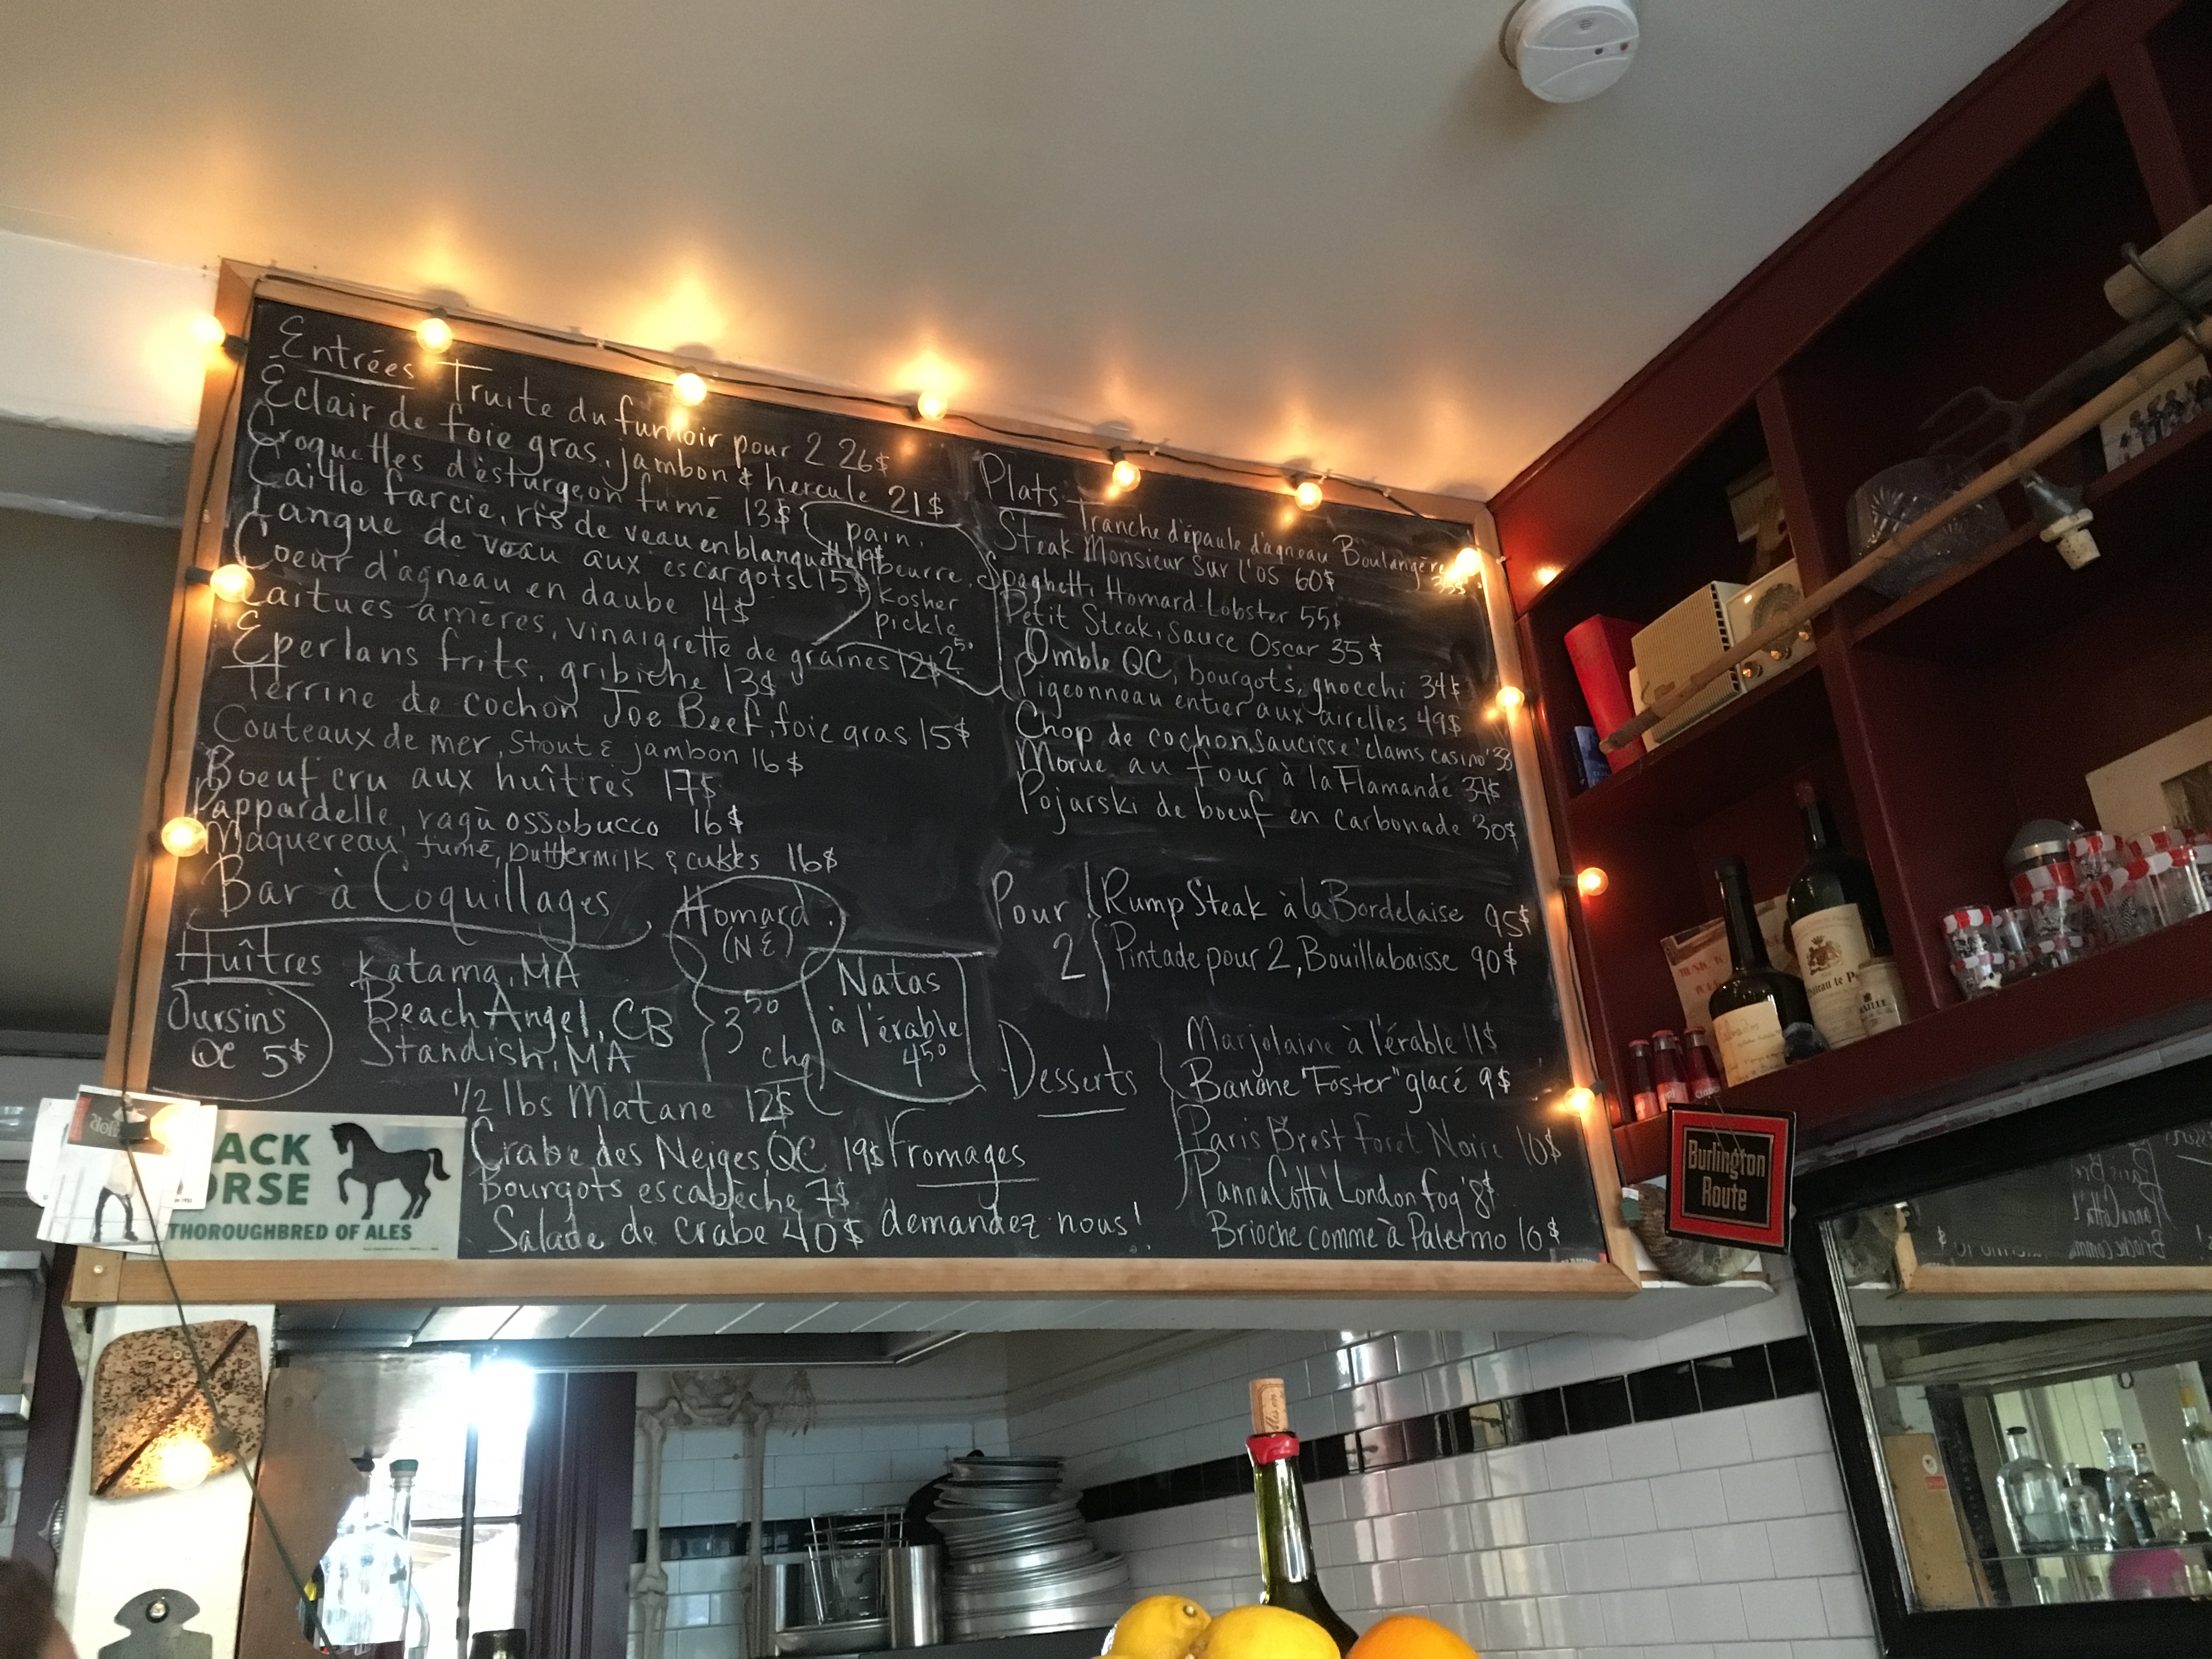 Entrées Truite du fumoir pour 2 26$
Eclair de foie gras, jambon & hercule 21$
Croquettes d'esturgeon fumé 13$
Caille farcie, ris de veau en blanquette 19$
Langue de veau aux escargots 15$
Coeur d'agneau en daube 14$
Laitues amères, vinaigrette de graines 12$
Eperlans frits, gribiche 13$
Terrine de cochon Joe Beef, foie gras 15$
Couteaux de mer, Stout & jambon 16$
Boeuf cru aux huîtres 17$
Pappardelle, ragù ossobucco 16$
Maquereau fumé, buttermilk & cukes 16$
pain,
beurre,
kosher
pickle
2.50
Bar à Coquillages
Homard
(NÉ)
Huîtres
Katama, MA
Beach Angel, CB
Standish, MA
3 50
chq
Oursins
QC 5$
Natas
à l'érable
4 50
1/2 lbs Matane 12$
Crabe des Neiges, QC 19$
Bourgots escabèche 7$
Salade de crabe 40$
Fromages
demandez-nous!
Plats Tranche d'épaule d'agneau Boulangère
Steak Monsieur sur l'os 60$
Spaghetti Homard-Lobster 55$
Petit Steak, sauce Oscar 35$
Omble QC, bourgots, gnocchi 34$
Pigeonneau entier aux airelles 49$
Chop de cochon, saucisse 'clams casino' 33
Morue au four à la Flamande
Pojarski de boeuf en carbonade 30$
Pour
2
Rump Steak à la Bordelaise 95$
Pintade pour 2, Bouillabaisse 90$
Desserts
Marjolaine à l'érable 11$
Banane "Foster" glacé 9$
Paris Brest foret Noire 10$
Panna Cotta 'London fog' 8$
Brioche comme à Palermo 10$
ACK
ORSE
THOROUGHBRED OF ALES
Burlington
Route